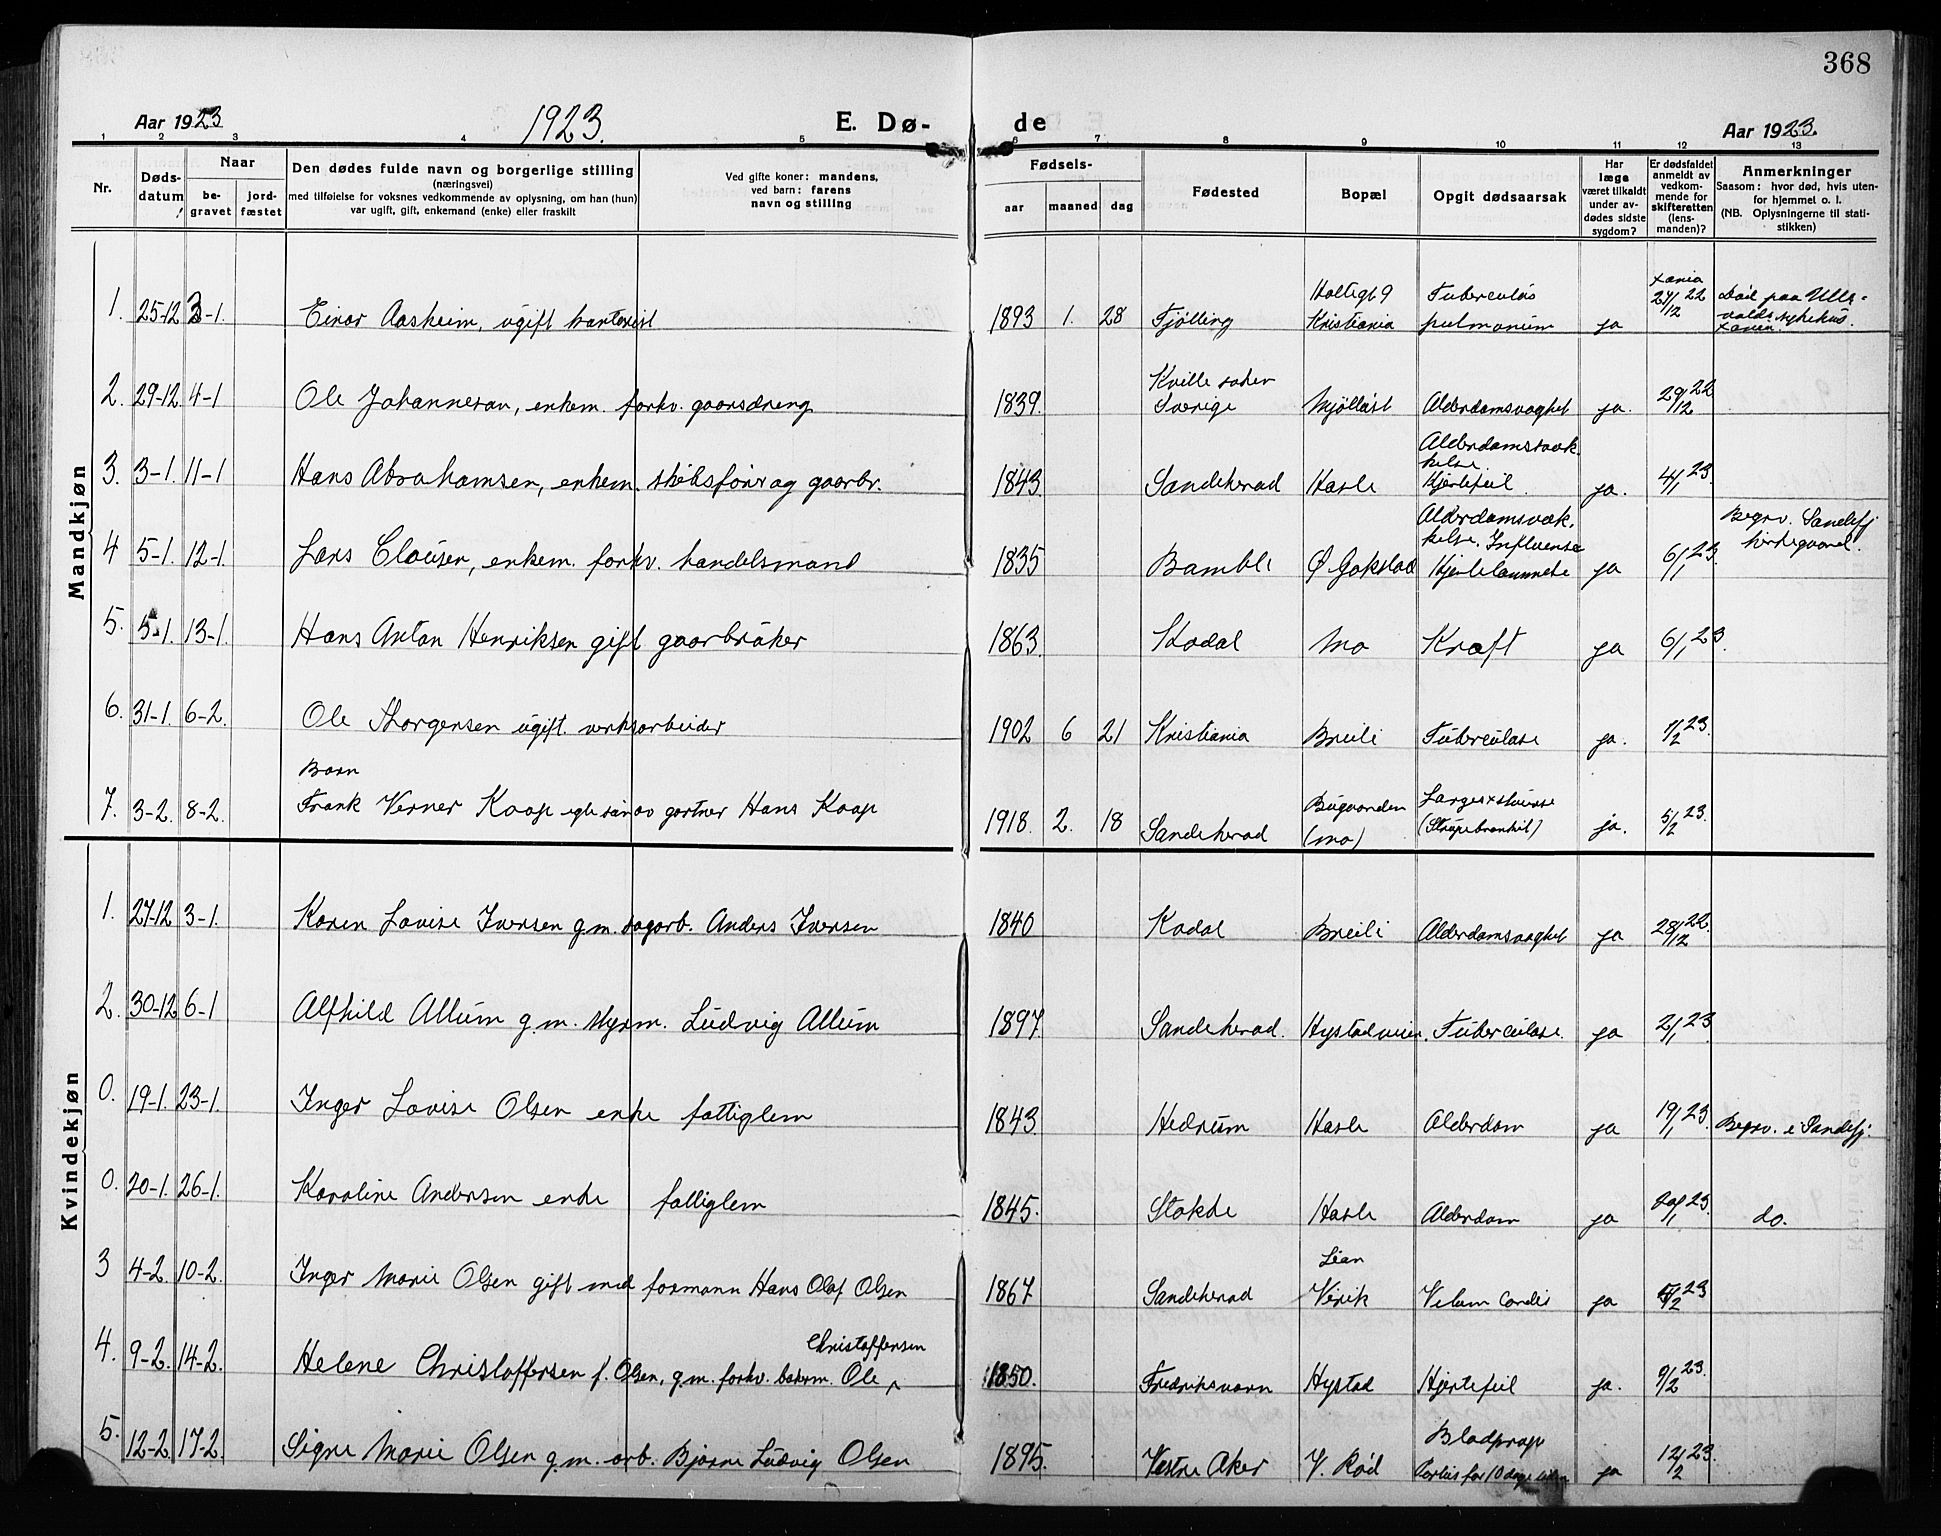 368
Aar 1923
1923.
E. Dø-
de
Aar 1923.
1 2 3 4 5 6 7 8 9 10 11 12 13
Nr.
Døds-
datum
Naar
be-
gravet
jord-
fæstet
Den dødes fulde navn og borgerlige stilling
(næringsvei)
med tilføielse for voksnes vedkommende av oplysning, om han (hun)
var ugift, gift, enkemand (enke) eller fraskilt
Ved gifte koner: mandens,
ved barn: farens
navn og stilling
Fødsels-
aar
maaned
dag
Fødested
Bopæl
Opgit dødsaarsak
Har
læge
været tilkaldt
under av-
dødes sidste
sygdom?
Er dødsfaldet
anmeldt av
vedkom-
mende for
skifteretten
(lens-
manden)?
Anmerkninger
Saasom: hvor død, hvis uten-
for hjemmet o. l.
(NB. Oplysningerne til stati-
stikken)
Mandkjøn
1. 25-12 3-1. Einar Aasheim, ugift kontorist 1893 1. 28 Fjølling Holtegt 9 Kristiania Tuberculos pulmonum ja xania 27/12 22 Død paa Ulle-
valds sykehus.
xania.
2. 29-12. 4-1 Ole Johannesen, enkem. forhv. gaarsdreng 1839. Kville sokn Sverige Mjøllost Alderdomsvaghet ja. 29/12 22
3. 3-1. 11-1 Hans Abrahamsen, enkem. skibsfører og gaarbr. 1843. Sandeherad Hasle Alderdomssvæk-
kelse.
Hjertefeil. ja. 4/1 23.
4 5-1. 12-1. Lars Clausen, enkem. forhv. handelsmand 1835 Bamble Ø Gokstad Alderdomsvæk.
kelse. Influensa
Hjertelammelse ja 6/1 23. Begrv. Sandefj
kirkegaard.
5. 5-1. 13-1. Hans Anton Henriksen gift gaarbruker 1863. Kodal Mo Kræft ja 6/1 23.
6. 31-1. 6-2. Ole Thorgersen ugift verksarbeider 1902 6 21 Kristiania Breili Tuberculose ja. 1/2 23.
Barn
7. 3-2. 8-2. Frank Verner Kaap egte søn av gartner Hans Kaap 1918. 2. 18 Sandeherad Bugaarden
(Mo) (Strupebronkit) ja. 5/2 23.
Kvindekjøn
1. 27-12 3-1. Karen Lovise Iversen g.m. sagarb. Anders Iversen 1840 Kodal Breili Alderdomsvaghet ja 28/12 22.
2. 30-12 6-1 Alfhild Allum g.m. styrm. Ludvig Allum 1897. Sandeherad. Hystadveien. Tuberculose. ja 2/1 23.
0. 19-1. 23-1. Inger Lovise Olsen enke fattiglem 1843. Hedrum Hasle Alderdom ja 19/1 23. Begrv. i Sandefj.
0. 20-1. 26-1. Karoline Andersen enke fattiglem 1845. Stokke Hasle Alderdom ja 20/1 23. do.
3 4-2. 10-2. Inger Marie Olsen gift med formann Hans Olaf Olsen 1867 Sandeherad Lian
Virik Vitium Cordis ja 5/2 23
4. 9-2. 14-2. Helene Christoffersen f. Olsen, g.m. forhv. bakerm. Ole Christoffersen 1850. Fredriksvarn Hystad Hjertefeil ja. 9/2 23.
5. 12-2. 17-2. Signe Marie Olsen g.m. arb. Bjarne Ludvig Olsen 1895. Vestre Aker V. Rød Blodprop
for 10 dage siden ja 12/2 23.